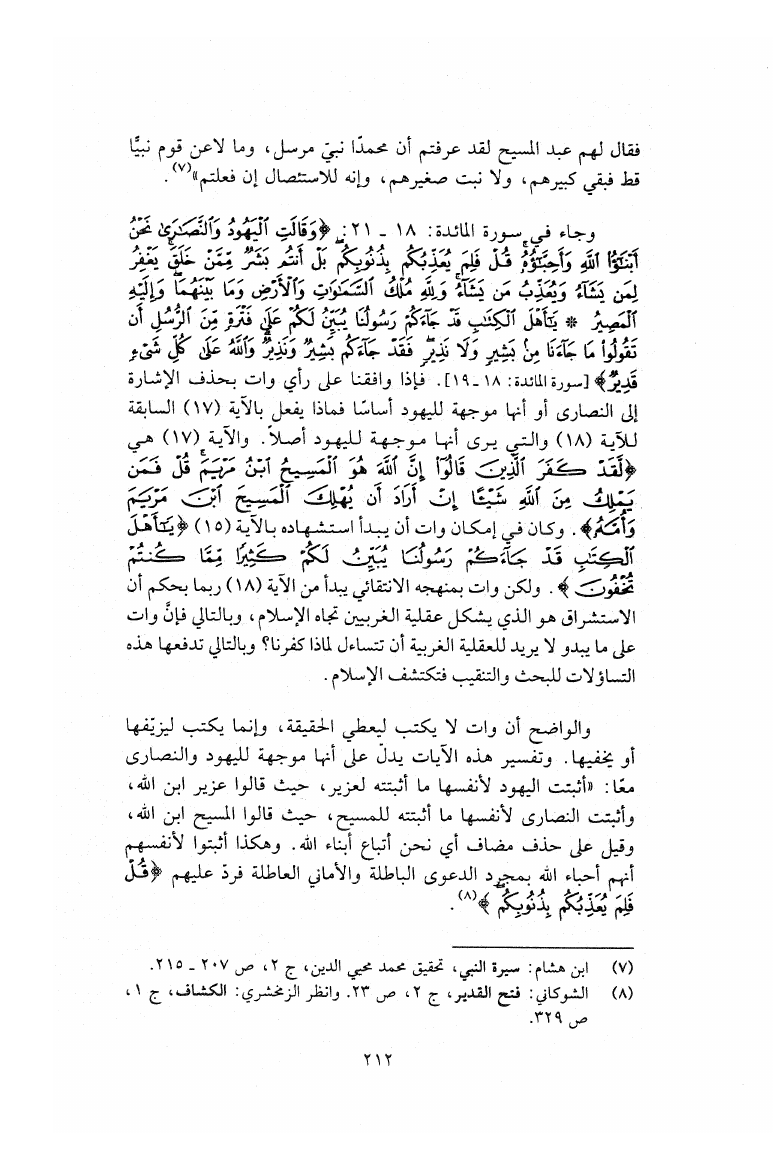 فقال لهم عبد المسيح لقد عرفتم أن محمدًا نبيّ مرسل، وما لاعن قوم نبيًّا
قط فبقي كبيرهم، ولا نبت صغيرهم، وإنه للاستئصال إن فعلتم»(٧).
وجاء في سورة المائدة: ١٨ ـ ٢١: ﴿وَقَالَتِ ٱلْيَهُودُ وَٱلنَّصَٰرَىٰ نَحْنُ
أَبْنَٰٓؤُا۟ ٱللَّهِ وَأَحِبَّٰٓؤُهُۥ ۚ قُلْ فَلِمَ يُعَذِّبُكُم بِذُنُوبِكُم ۖ بَلْ أَنتُم بَشَرٌ مِّمَّنْ خَلَقَ ۚ يَغْفِرُ
لِمَن يَشَآءُ وَيُعَذِّبُ مَن يَشَآءُ ۚ وَلِلَّهِ مُلْكُ ٱلسَّمَٰوَٰتِ وَٱلْأَرْضِ وَمَا بَيْنَهُمَا ۖ وَإِلَيْهِ
ٱلْمَصِيرُ * يَٰٓأَهْلَ ٱلْكِتَٰبِ قَدْ جَآءَكُمْ رَسُولُنَا يُبَيِّنُ لَكُمْ عَلَىٰ فَتْرَةٍ مِّنَ ٱلرُّسُلِ أَن
تَقُولُوا۟ مَا جَآءَنَا مِنۢ بَشِيرٍ وَلَا نَذِيرٍ ۖ فَقَدْ جَآءَكُم بَشِيرٌ وَنَذِيرٌ ۗ وَٱللَّهُ عَلَىٰ كُلِّ شَىْءٍ
قَدِيرٌ﴾ [سورة المائدة: ١٨ ـ ١٩]. فإذا وافقنا على رأي وات بحذف الإشارة
إلى النصارى أو أنها موجهة لليهود أساسًا فماذا يفعل بالآية (١٧) السابقة
للآية (١٨) والتي يرى أنها موجهة لليهود أصلاً. والآية (١٧) هي
﴿لَقَدْ كَفَرَ ٱلَّذِينَ قَالُوٓا۟ إِنَّ ٱللَّهَ هُوَ ٱلْمَسِيحُ ٱبْنُ مَرْيَمَ ۚ قُلْ فَمَن
يَمْلِكُ مِنَ ٱللَّهِ شَيْـًٔا إِنْ أَرَادَ أَن يُهْلِكَ ٱلْمَسِيحَ ٱبْنَ مَرْيَمَ
وَأُمَّهُۥ﴾. وكان في إمكان وات أن يبدأ استشهاده بالآية (١٥) ﴿يَٰٓأَهْلَ
ٱلْكِتَٰبِ قَدْ جَآءَكُمْ رَسُولُنَا يُبَيِّنُ لَكُمْ كَثِيرًا مِّمَّا كُنتُمْ
تُخْفُونَ﴾. ولكن وات بمنهجه الانتقائي يبدأ من الآية (١٨) ربما بحكم أن
الاستشراق هو الذي يشكل عقلية الغربيين تجاه الإسلام، وبالتالي فإنَّ وات
على ما يبدو لا يريد للعقلية الغربية أن تتساءل لماذا كفرنا؟ وبالتالي تدفعها هذه
التساؤلات للبحث والتنقيب فتكتشف الإسلام.
والواضح أن وات لا يكتب ليعطي الحقيقة، وإنما يكتب ليزيّفها
أو يخفيها. وتفسير هذه الآيات يدلّ على أنها موجهة لليهود والنصارى
معًا: «أثبتت اليهود لأنفسها ما أثبتته لعزير، حيث قالوا عزير ابن الله،
وأثبتت النصارى لأنفسها ما أثبتته للمسيح، حيث قالوا المسيح ابن الله،
وقيل على حذف مضاف أي نحن أتباع أبناء الله. وهكذا أثبتوا لأنفسهم
أنهم أحباء الله بمجرد الدعوى الباطلة والأماني العاطلة فردّ عليهم ﴿قُلْ
فَلِمَ يُعَذِّبُكُم بِذُنُوبِكُم ۖ﴾(٨).
(٧) ابن هشام: سيرة النبي، تحقيق محمد محيي الدين، ج ٢، ص ٢٠٧ ـ ٢١٥.
(٨) الشوكاني: فتح القدير، ج ٢، ص ٢٣. وانظر الزمخشري: الكشاف، ج ١،
ص ٣٢٩.
٢١٢